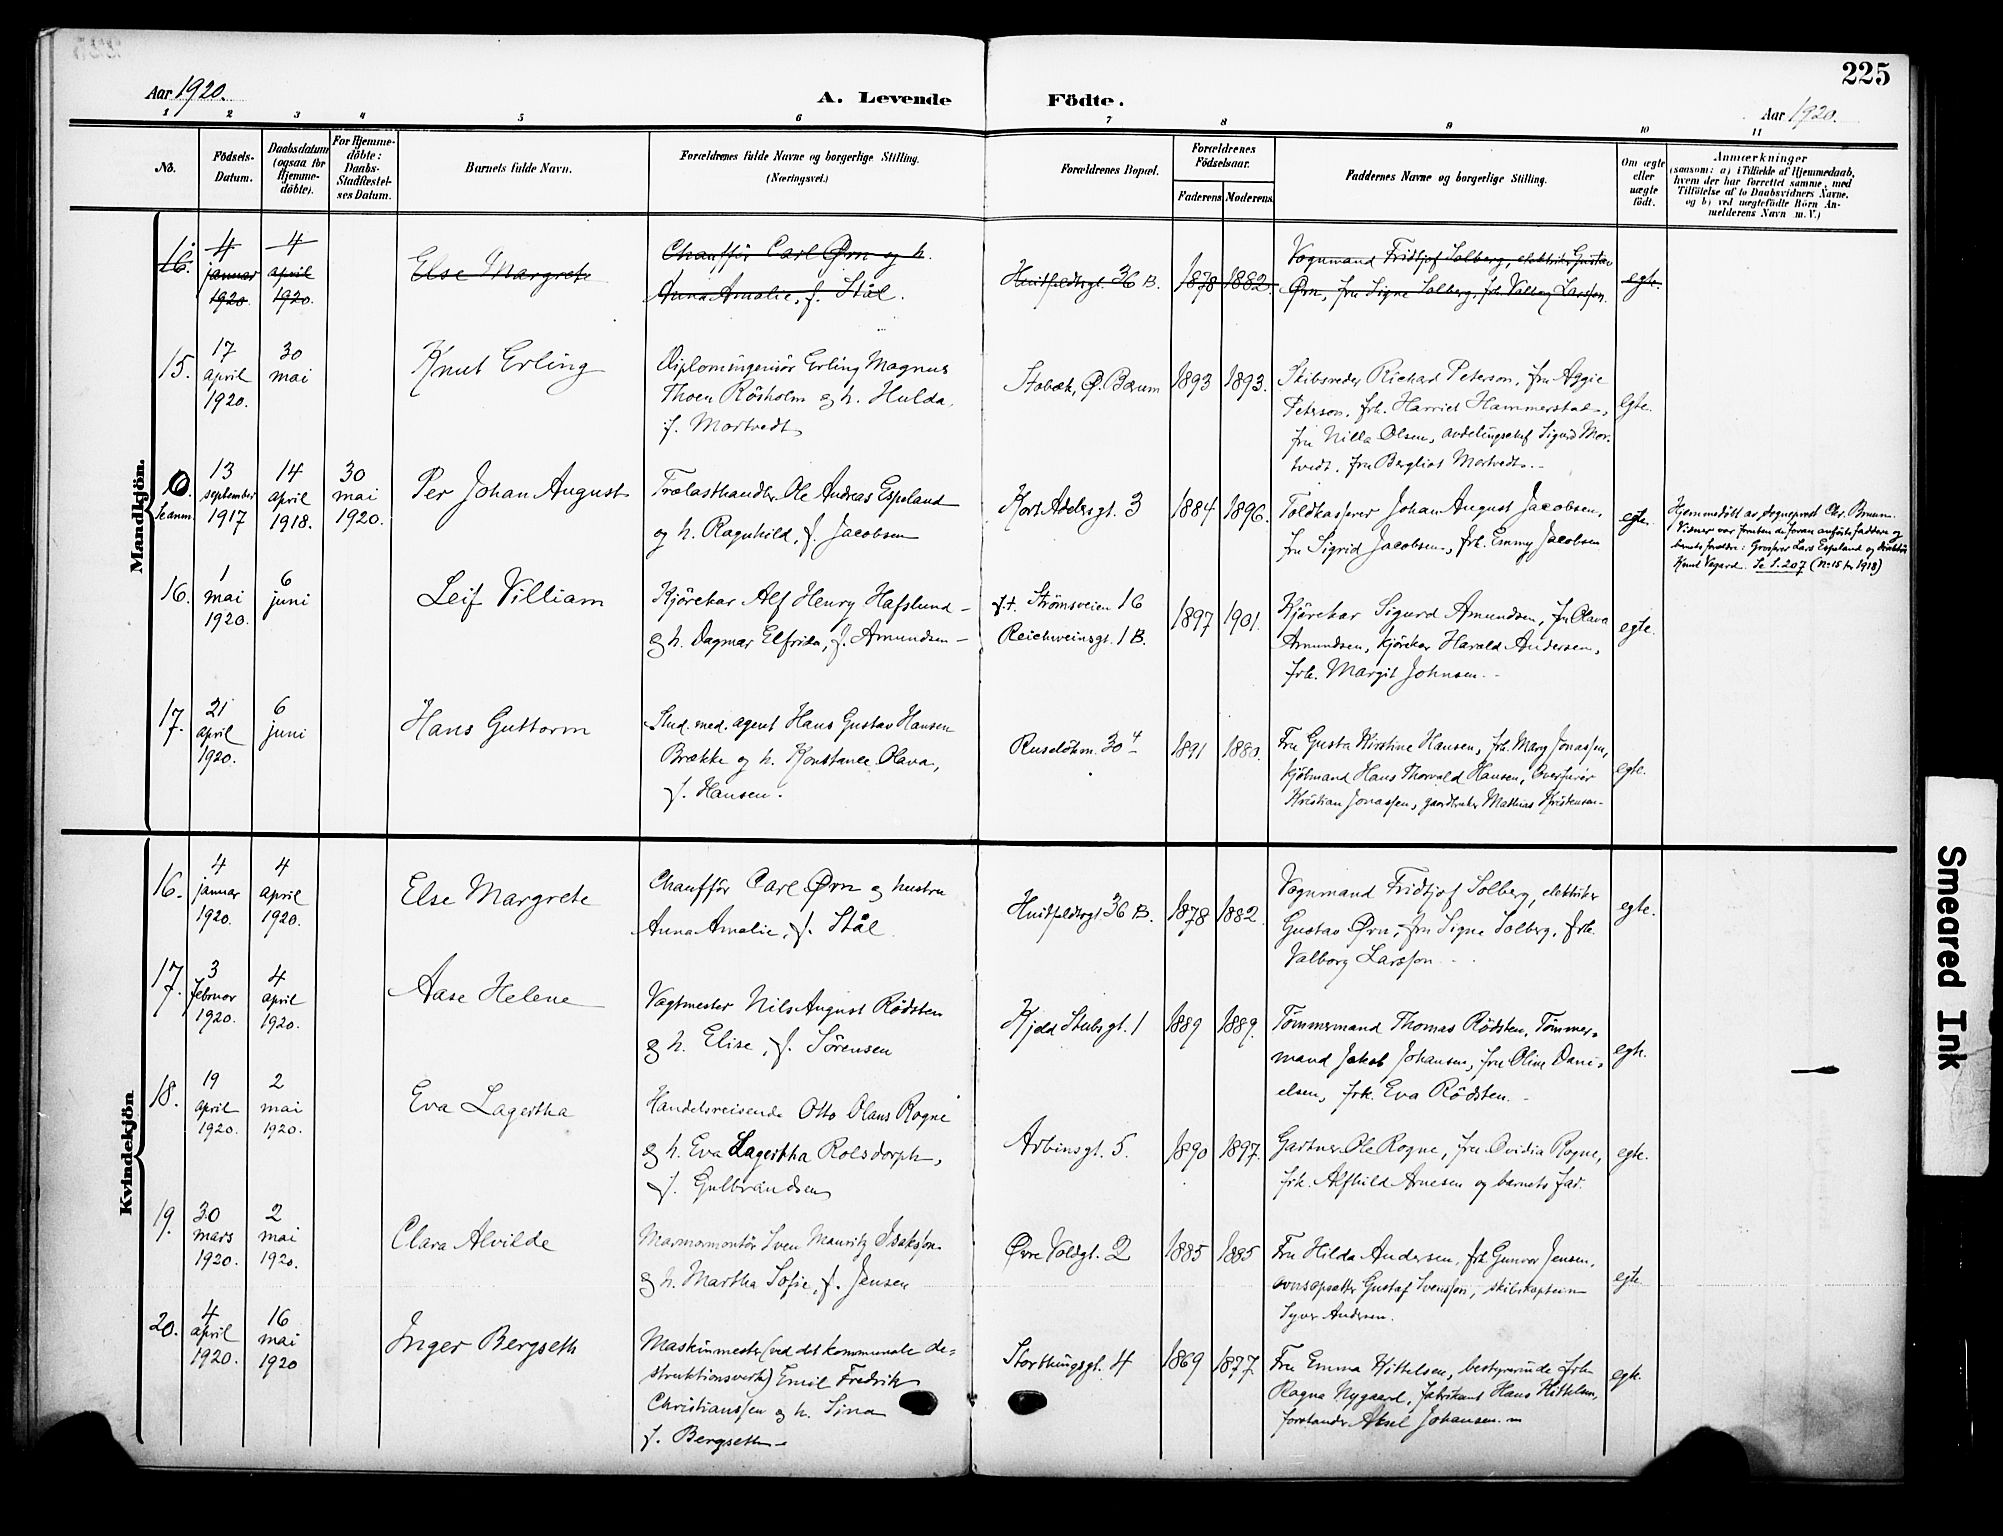 225
Aar 1920.
A. Levende Födte.
Aar 1920.
1 2 3 4 5 6 7 8 9 10 11
No.
Födsels-
Datum.
Daabsdatum
(ogsaa for
Hjemme-
döbte).
For Hjemme-
döbte:
Daabs-
Stadfæstel-
ses Datum.
Barnets fulde Navn.
Forældrenes fulde Navne og borgerlige Stilling.
(Næringsvei.)
Forældrenes Bopæl.
Forældrenes
Födselsaar.
Faderens Moderens
Faddernes Navne og borgerlige Stilling.
Om ægte
eller
uægte
födt.
Anmærkninger
(saasom: a) i Tilfælde af Hjemmedaab,
hvem der har forrettet samme, med
Tilföielse af to Daabsvidners Navne,
og b) ved uægtefödte Börn An-
melderens Navn m. V.)
Mandkjön.
16.
4
januar
1920.
4
april
1920.
Else Margrete
Chaufför Carl Ørn og h.
Anna Amalie, f. Stål.
Huitfeldtsgt. 36 B.
1878 1882.
Vognmand Fridtjof Solberg, elektriker Gustav
Ørn, fru Signe Solberg, frk. Valborg Larsson.
egte.
15.
17
april
1920.
30
mai
Knut Erling
Diplomingeniör Erling Magnus
Thoen Rösholm og h. Hulda,
f. Mortvedt
Stabæk, Ø. Bærum
1893 1893.
Skibsreder Richard Peterson, fru Aggie
Peterson, frk. Harriet Hammerstad,
fru Nilla Olsen, avdelingschef Sigurd Mor-
tvedt, fru Bergliot Mortvedt.
egte.
10.
Se anm.
13
september
1917
14
april
1918.
30
mai
1920.
Per Johan August
Trælasthandler Ole Andreas Espeland
og h. Ragnhild, f. Jacobsen
Kort Adelersgt. 3
1884 1896.
Toldkasserer Johan August Jacobsen,
fru Sigrid Jacobsen, frk. Emmy Jacobsen
egte.
Hjemmedöbt av sogneprest Chr. Bruun.
Vidner var foruten de foran anförte faddere og
barnets forældre: Grosserer Lars Espeland og direktör
Knut Vagard. Se S. 207 (No 15 for 1918)
16.
1
mai
1920.
6
juni
Leif Villiam
Kjörekar Alf Henry Hafslund
og h. Dagmar Elfrida, f. Amundsen
f.t. Strömsveien 16
Reichweinsgt. 1 B.
1897 1901.
Kjörekar Sigurd Amundsen, fru Olava
Amundsen, kjörekar Harald Andersen,
frk. Margit Johnsen.
egte.
17.
21
april
1920.
6
juni
Hans Guttorm
Stud. med. agent Hans Gustav Hansen
Brække og h. Konstance Olava,
f. Hansen.
Ruselökvn. 30 4
1891 1880.
Fru Gusta Kirstine Hansen, frk. Mary Jonassen,
kjöbmand Hans Thorvald Hansen,
Kristian Jonassen, gaardbruker Mathias Kristensen
egte.
Kvindekjön
16.
4
januar
1920.
4
april
1920.
Else Margrete
Chaufför Carl Ørn og hustru
Anna Amalie, f. Stål.
Huitfeldtsgt. 36 B.
1878 1882.
Vognmand Fridtjof Solberg, elektriker
Gustav Ørn, fru Signe Solberg, frk.
Valborg Larsson
egte.
17.
3
februar
1920.
4
april
1920.
Aase Helene
Vagtmester Nils August Rödsten
og h. Elise, f. Sörensen
Kjeld Stubsgt. 1
1889 1889.
Tömmermand Thomas Rödsten, Tömmer-
mand Jakob Johansen, fru Oline Dani-
elsen, frk. Eva Rödsten.
egte.
18.
19
april
1920.
2
mai
1920.
Eva Lagertha
Handelsreisende Otto Olaus Rogne
og h. Eva Lagertha Rolsdorph,
f. Gulbrandsen
Arbinsgt. 5.
1890 1897.
Gartner Ole Rogne, fru Ovidia Rogne,
frk. Alfhild Arnesen og barnets far.
egte.
19.
30
mars
1920.
2
mai
1920.
Clara Alvilde
Marmormontör Sven Mauritz Isaksson
og h. Martha Sofie, f. Jensen
Øvre Voldgt. 2
1885 1885
Fru Hilda Andersen, frk. Gunvor Jensen,
ovnsopsætter Gustaf Svensson, skibskaptein
Syver Andersen.
egte
20.
4
april
1920.
16
mai
1920
Inger Bergseth
Maskinmester (ved det kommunale de-
struktionsverk) Emil Fredrik
Christianssen og h. Lina
f. Bergseth
Storthingsgt. 4
1869 1877.
Fru Emma Kittelsen, bestyrerinde frk.
Ragna Nygaard, fabrikant Hans Kittelsen,
forstander Aksel Johansen.
egte.
Smeared Ink